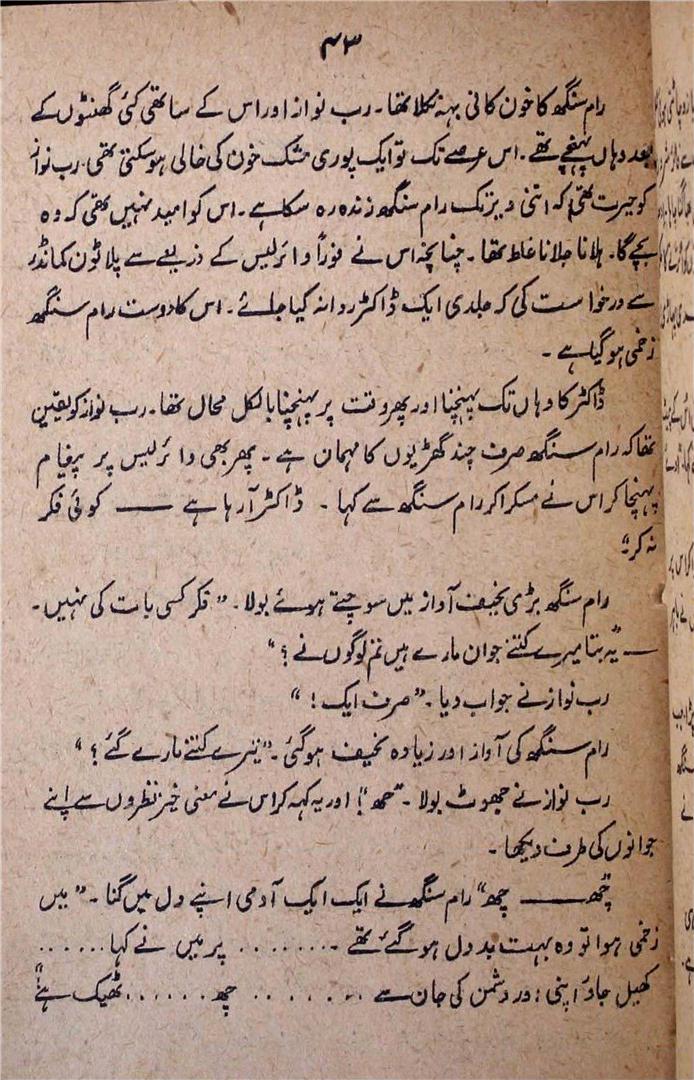 ۴۳
رام سنگھ کا خون کافی بہہ نکلا تھا۔ رب نواز اور اس کے ساتھی کئی گھنٹوں کے
بعد وہاں پہنچے تھے۔ اس عرصے تک تو ایک پوری مشک خون کی خالی ہو سکتی تھی۔ رب نواز
کو حیرت تھی کہ اتنی دیر تک رام سنگھ زندہ رہ سکا ہے۔ اس کو امید نہیں تھی کہ وہ
بچے گا۔ ہلانا جلانا غلط تھا۔ چنانچہ اس نے فوراً وائرلیس کے ذریعے سے پلاٹون کمانڈر
سے درخواست کی کہ جلدی ایک ڈاکٹر روانہ کیا جائے۔ اس کا دوست رام سنگھ
زخمی ہو گیا ہے۔
ڈاکٹر کا وہاں تک پہنچنا اور پھر وقت پر پہنچنا بالکل محال تھا۔ رب نواز کو یقین
تھا کہ رام سنگھ صرف چند گھڑیوں کا مہمان ہے۔ پھر بھی وائرلیس پر پیغام
پہنچا کر اس نے مسکرا کر رام سنگھ سے کہا۔ ڈاکٹر آ رہا ہے —— کوئی فکر
نہ کر"
رام سنگھ بڑی نحیف آواز میں سوچتے ہوئے بولا۔ "فکر کسی بات کی نہیں۔
— یہ بتا میرے کتنے جوان مارے ہیں تم لوگوں نے؟"
رب نواز نے جواب دیا۔ "صرف ایک!"
رام سنگھ کی آواز اور زیادہ نحیف ہو گئی۔ "تیرے کتنے مارے گئے؟"
رب نواز نے جھوٹ بولا۔ "چھ"! اور یہ کہہ کر اس نے معنی خیز نظروں سے اپنے
جوانوں کی طرف دیکھا۔
"چھ —— چھ" رام سنگھ نے ایک ایک آدمی اپنے دل میں گنا۔ "میں
زخمی ہوا تو وہ بہت بد دل ہو گئے تھے ۔........ پر میں نے کہا......
کھیل جاؤ اپنی اور دشمن کی جان سے ........ چھ ...... ٹھیک ہے"